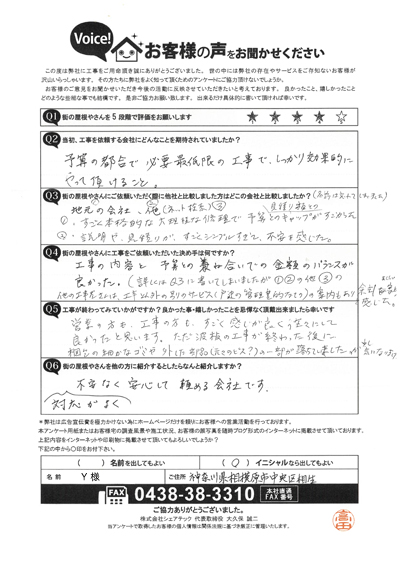 Voice!
お客様の声をお聞かせください
この度は弊社に工事をご用命頂き誠にありがとうございました。世の中には弊社の存在やサービスをご存知ないお客様が
沢山いらっしゃいます。その方たちに弊社をよく知って頂くためのアンケートにご協力頂けないでしょうか。
お客様のご意見をお聞かせいただき今後の活動に反映させていただきたいと考えております。良かったこと、嬉しかったこと
どのような些細な事でも結構です。是非ご協力お願い致します。出来るだけ具体的に書いて頂ければ幸いです。
Q1 街の屋根やさんを5段階で評価をお願いします ★ ★ ★ ★ ☆
Q2 当初、工事を依頼する会社にどんなことを期待されていましたか?
予算の都合で必要最低限の工事で、しっかり効果的に
やって頂けること。
Q3 街の屋根やさんにご依頼いただく前に他社と比較しました方はどこの会社と比較しましたか?
地元の会社
①、すごく本格的な大規模な修理で予算とのギャップがすごかった
②、説明や、見積りが、すごくシンプルすぎて、不安を感じた。
Q4 街の屋根やさんに工事をご依頼いただいた決め手は何ですか?
工事の内容と予算との兼ね合いでの金額のバランスが
良かった。(詳しくはQ3に書いてしまいましたが①②の他③の
感じた。
Q5 工事が終わってみていかがですか?良かった事・嬉しかったことを忌憚なく頂戴出来ましたら幸いです
営業の方も、工事の方も、すごく感じが良く
良かったと思います。ただ波板の工事が終わった後に
Q6 街の屋根やさんを他の方に紹介するとしたらなんと紹介しますか?
不安なく安心して頼める会社です。
対応がよく
※弊社は広告宣伝費を極力かけない為にホームページだけを頼りにお客様への営業活動を行っております。
本アンケート用紙またはお客様宅の調査風景や施工状況、お客様の顔写真を随時ブログ形式のインターネットに掲載させて頂いております。
上記内容をインターネットや印刷物に掲載させて頂いてもよろしいでしょうか?
下記の中から○印をお付け下さい。
( ) 名前を出してもよい ( ○ ) イニシャルなら出してもよい
名前 Y様 ご住所 神奈川県相模原市中央区相生
FAX 0438-38-3310 本社直通 FAX番号
ご協力ありがとうございました。
株式会社シェアテック 代表取締役 大久保 誠二
当アンケートで取得したお客様の個人情報は関係法規に基づき厳正に管理いたします。